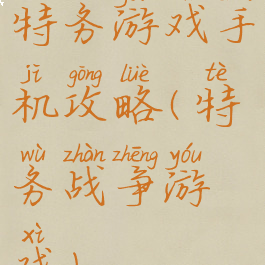 特务游戏手
jī gōng lüè tè
机攻略(特
wù zhàn zhēng yóu
务战争游
xì
戏)